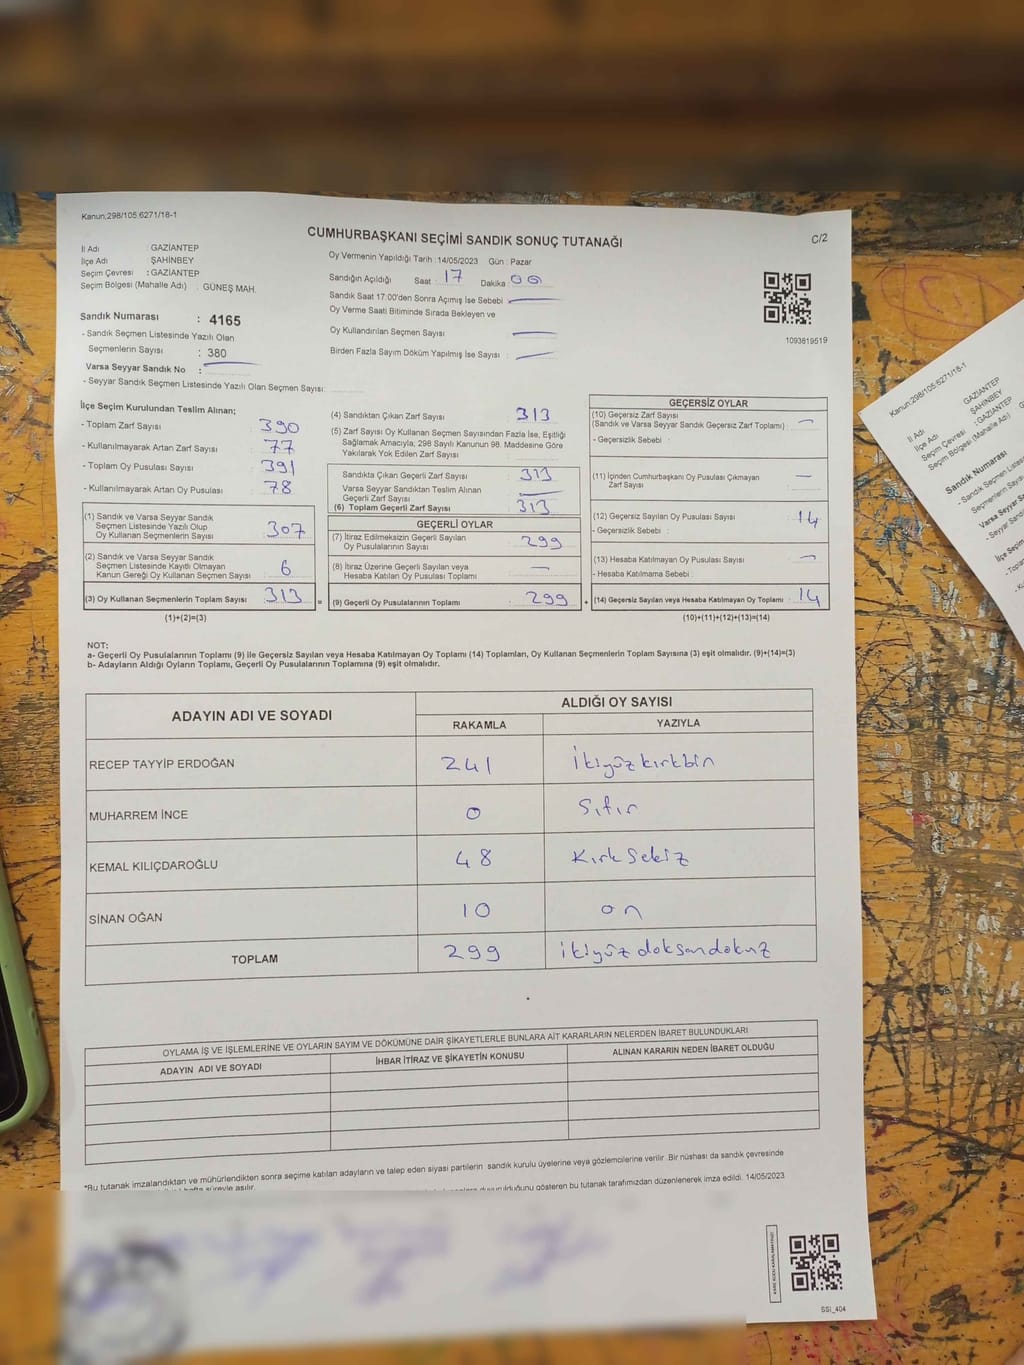 Kanun:298/105.6271/18-1
CUMHURBAŞKANI SEÇİMİ SANDIK SONUÇ TUTANAĞI
C/2
İl Adı : GAZİANTEP
İlçe Adı : ŞAHİNBEY
Seçim Çevresi : GAZİANTEP
Seçim Bölgesi (Mahalle Adı) : GÜNEŞ MAH.
Sandık Numarası : 4165
- Sandık Seçmen Listesinde Yazılı Olan
Seçmenlerin Sayısı : 380
Varsa Seyyar Sandık No :
- Seyyar Sandık Seçmen Listesinde Yazılı Olan Seçmen Sayısı:
Oy Vermenin Yapıldığı Tarih : 14/05/2023 Gün : Pazar
Sandığın Açıldığı Saat : 17 Dakika : 00
Sandık Saat 17:00'den Sonra Açımış İse Sebebi :
Oy Verme Saati Bitiminde Sırada Bekleyen ve
Oy Kullandırılan Seçmen Sayısı :
Birden Fazla Sayım Döküm Yapılmış İse Sayısı :
1093819519
İlçe Seçim Kurulundan Teslim Alınan;
- Toplam Zarf Sayısı : 390
- Kullanılmayarak Artan Zarf Sayısı : 77
- Toplam Oy Pusulası Sayısı : 391
- Kullanılmayarak Artan Oy Pusulası : 78
(1) Sandık ve Varsa Seyyar Sandık
Seçmen Listesinde Yazılı Olup
Oy Kullanan Seçmenlerin Sayısı : 307
(2) Sandık ve Varsa Seyyar Sandık
Seçmen Listesinde Kayıtlı Olmayan
Kanun Gereği Oy Kullanan Seçmen Sayısı : 6
(3) Oy Kullanan Seçmenlerin Toplam Sayısı : 313 =
(1)+(2)=(3)
(4) Sandıktan Çıkan Zarf Sayısı : 313
(5) Zarf Sayısı Oy Kullanan Seçmen Sayısından Fazla İse, Eşitliği
Sağlamak Amacıyla; 298 Sayılı Kanunun 98. Maddesine Göre
Yakılarak Yok Edilen Zarf Sayısı :
Sandıkta Çıkan Geçerli Zarf Sayısı : 313
Varsa Seyyar Sandıktan Teslim Alınan
Geçerli Zarf Sayısı :
(6) Toplam Geçerli Zarf Sayısı : 313
GEÇERLİ OYLAR
(7) İtiraz Edilmeksizin Geçerli Sayılan
Oy Pusulalarının Sayısı : 299
(8) İtiraz Üzerine Geçerli Sayılan veya
Hesaba Katılan Oy Pusulası Toplamı : —
(9) Geçerli Oy Pusulalarının Toplamı : 299 +
GEÇERSİZ OYLAR
(10) Geçersiz Zarf Sayısı
(Sandık ve Varsa Seyyar Sandık Geçersiz Zarf Toplamı) : —
- Geçersizlik Sebebi :
(11) İçinden Cumhurbaşkanı Oy Pusulası Çıkmayan
Zarf Sayısı : —
(12) Geçersiz Sayılan Oy Pusulası Sayısı : 14
- Geçersizlik Sebebi :
(13) Hesaba Katılmayan Oy Pusulası Sayısı : —
- Hesaba Katılmama Sebebi :
(14) Geçersiz Sayılan veya Hesaba Katılmayan Oy Toplamı : 14
(10)+(11)+(12)+(13)=(14)
NOT:
a- Geçerli Oy Pusulalarının Toplamı (9) ile Geçersiz Sayılan veya Hesaba Katılmayan Oy Toplamı (14) Toplamları, Oy Kullanan Seçmenlerin Toplam Sayısına (3) eşit olmalıdır. (9)+(14)=(3)
b- Adayların Aldığı Oyların Toplamı, Geçerli Oy Pusulalarının Toplamına (9) eşit olmalıdır.
ADAYIN ADI VE SOYADI
ALDIĞI OY SAYISI
RAKAMLA YAZIYLA
RECEP TAYYİP ERDOĞAN 241 İkiyüzkırkbin
MUHARREM İNCE 0 Sıfır
KEMAL KILIÇDAROĞLU 48 Kırk Sekiz
SİNAN OĞAN 10 on
TOPLAM 299 ikiyüz doksandokuz
OYLAMA İŞ VE İŞLEMLERİNE VE OYLARIN SAYIM VE DÖKÜMÜNE DAİR ŞİKAYETLERLE BUNLARA AİT KARARLARIN NELERDEN İBARET BULUNDUKLARI
ADAYIN ADI VE SOYADI İHBAR İTİRAZ VE ŞİKAYETİN KONUSU ALINAN KARARIN NEDEN İBARET OLDUĞU
*Bu tutanak imzalandıktan ve mühürlendikten sonra seçime katılan adayların ve talep eden siyasi partilerin sandık kurulu üyelerine veya gözlemcilerine verilir. Bir nüshası da sandık çevresinde
hafta süreyle asılır. gösteren bu tutanak tarafımızdan düzenlenerek imza edildi. 14/05/2023
SSİ_404
Kanun:298/105.6271/18-1
İl Adı GAZİANTEP
İlçe Adı ŞAHİNBEY
Seçim Çevresi : GAZİANTEP
Seçim Bölgesi (Mahalle Adı)
Sandık Numarası
- Sandık Seçmen
Seçmenlerin